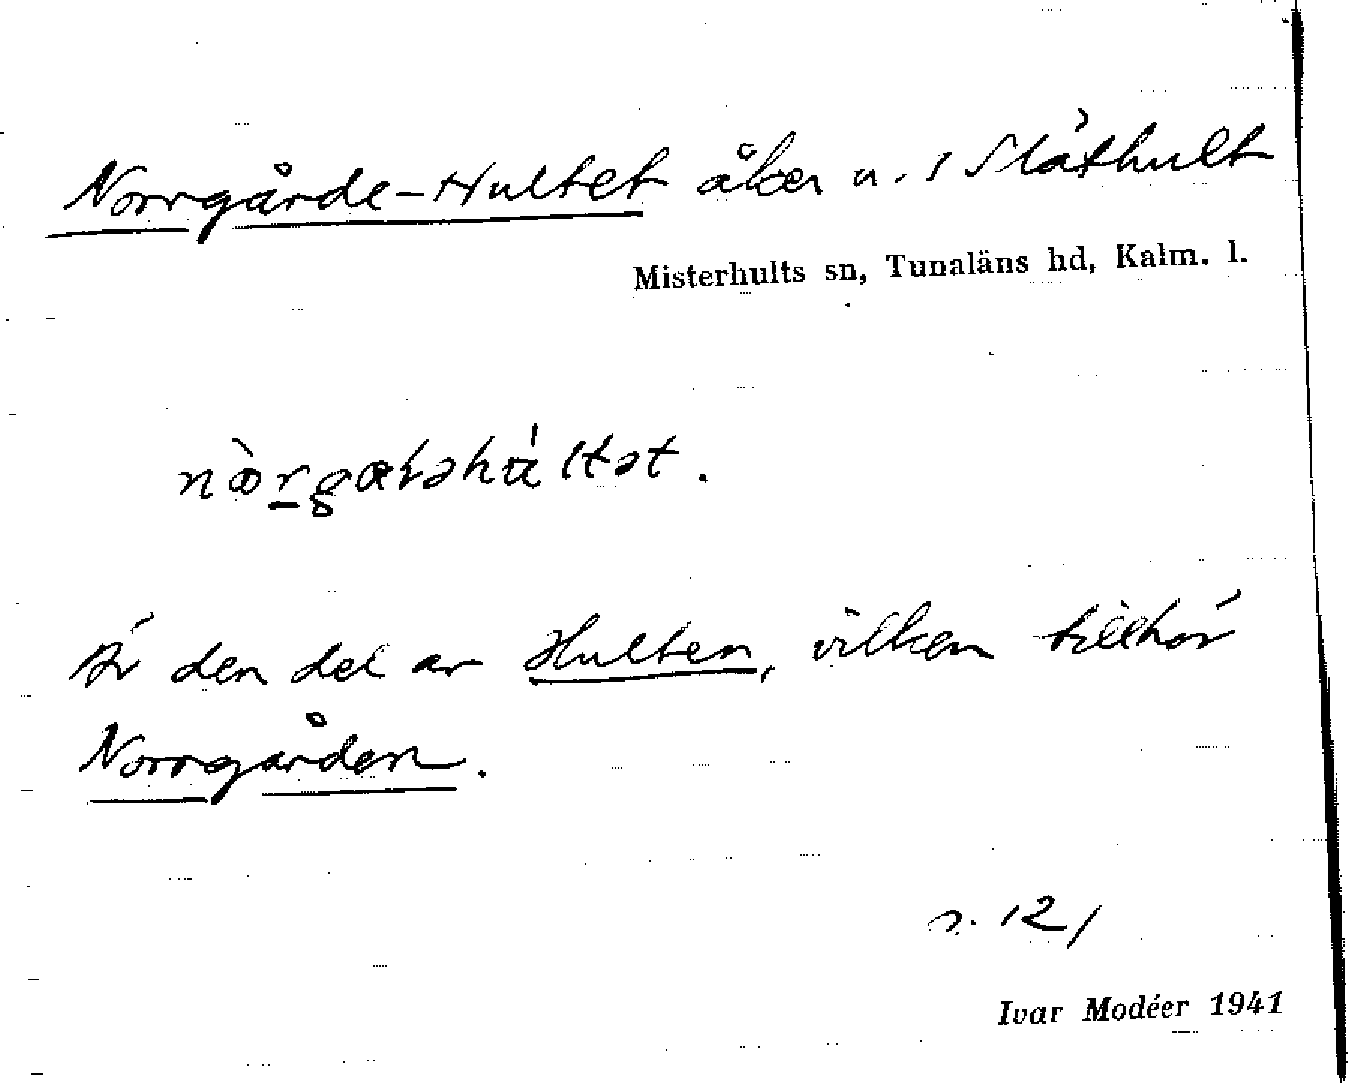 Norrgårde-Hultet åker u. 1 Släthult
Misterhults sn, Tunaläns hd, Kalm. l.
Är den del av Hulten, vilken tillhör
Norrgården.
s. 121
Ivar Modéer 1941